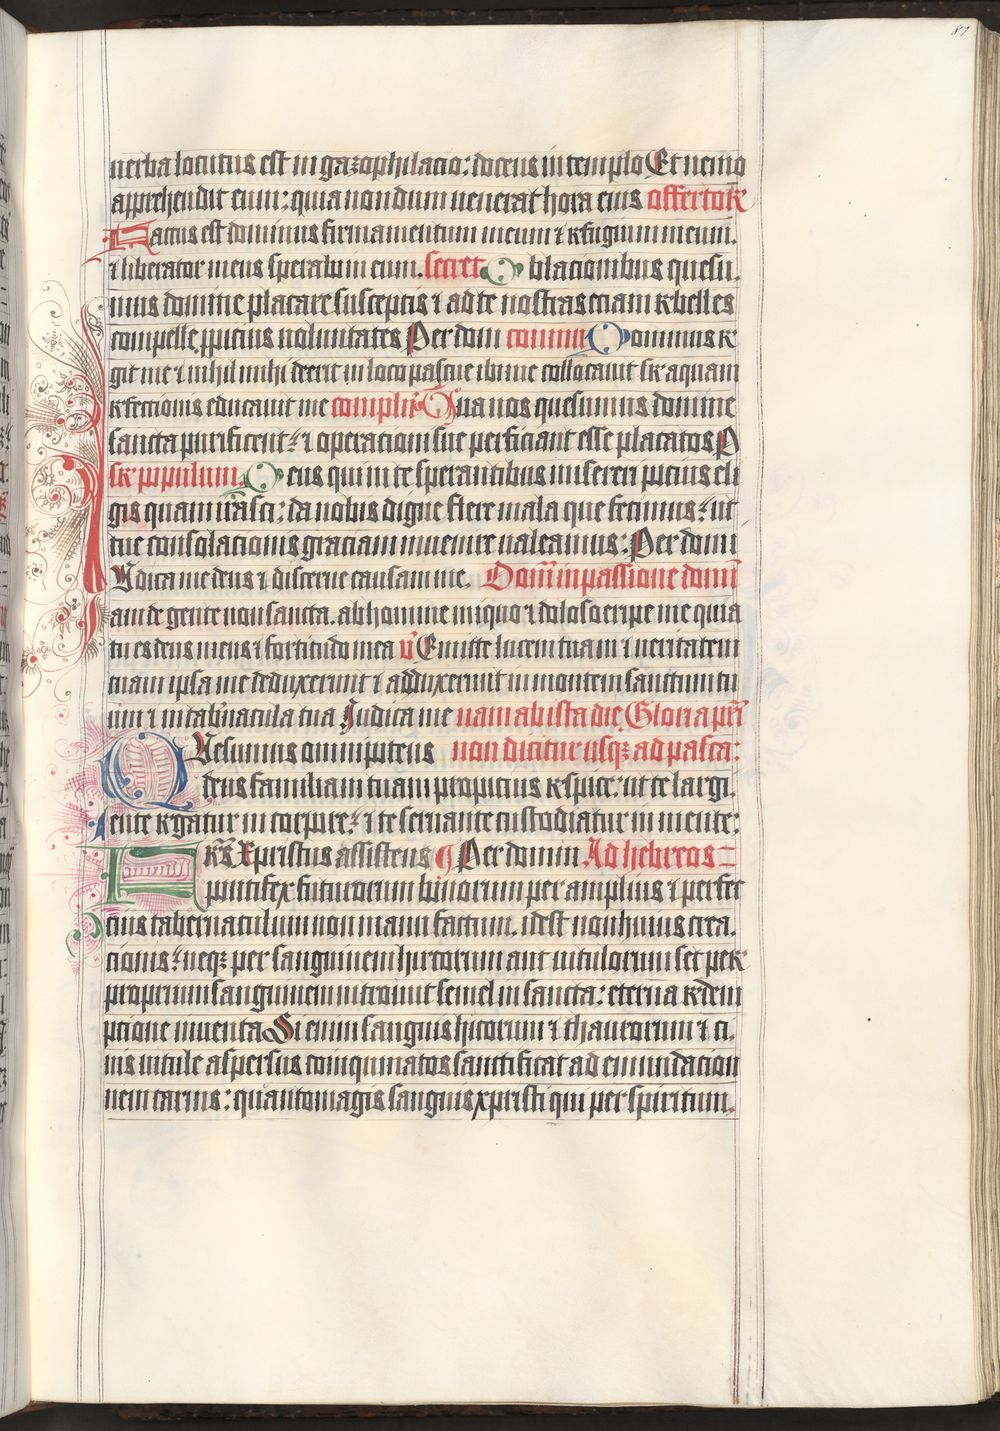 87
uerba locutus est in gazophilacio: docens in templo Et nemo
apprehendit eum: quia nondum uenerat hora eius offertor
Factus est dominus firmamentum meum ⁊ refugium meum.
⁊ liberator meus sperabo in eum. secret Oblacionibus quesu.
mus domine placare susceptis ⁊ ad te nostras eciam rebelles
compelle ꝓpicius uoluntates Per dom commu Dominus re
git me ⁊ nihil mihi deerit in loco pascue ibi me collocauit sup aquam
refectionis educauit me complen Tua nos quesumus domine
sancta purificent: ⁊ operacioni sue perficiant esse placatos P
sup populum. Deus qui in te sperantibus misereri pocius eli
gis quam irasci: da nobis digne flere mala que fecimus: ut
tue consolacionis graciam inuenire ualeamus: Per dom
Iudica me deus ⁊ discerne causam me Dom̄ in passione domī
am de gente non sancta. ab homine iniquo ⁊ doloso eripe me quia
tu es deus meus ⁊ fortitudo mea v̄ Emitte lucem tuam ⁊ ueritatem
tuam ipsa me deduxerunt ⁊ adduxerunt in montem sanctum tu
um ⁊ in tab'nacula tua Iudica me nam ab ista die Gloria pr̄i
Quesumus omnipotens non dicitur usqꝫ ad pasca:
deus familiam tuam propicius respice: ut te largi.
ente regatur in corpore: ⁊ te seruante custodiatur in mente:
Fr̄s Xpristus assistens ¶ Per domin Ad hebreos
pontifex futurorum bonorum per amplius ⁊ perfec
cius tabernaculum non manu factum. idest non huius crea.
cionis: neqꝫ per sanguinem hircorum aut uitulorum set per
proprium sanguinem introiuit semel in sancta: eterna redem
ptione inuenta Si enim sanguis hircorum ⁊ thaurorum ⁊ ci.
nis uitule aspersus coinquinatos sanctificat ad emundacion
nem carnis: quanto magis sanguis xpristi qui per spiritum.